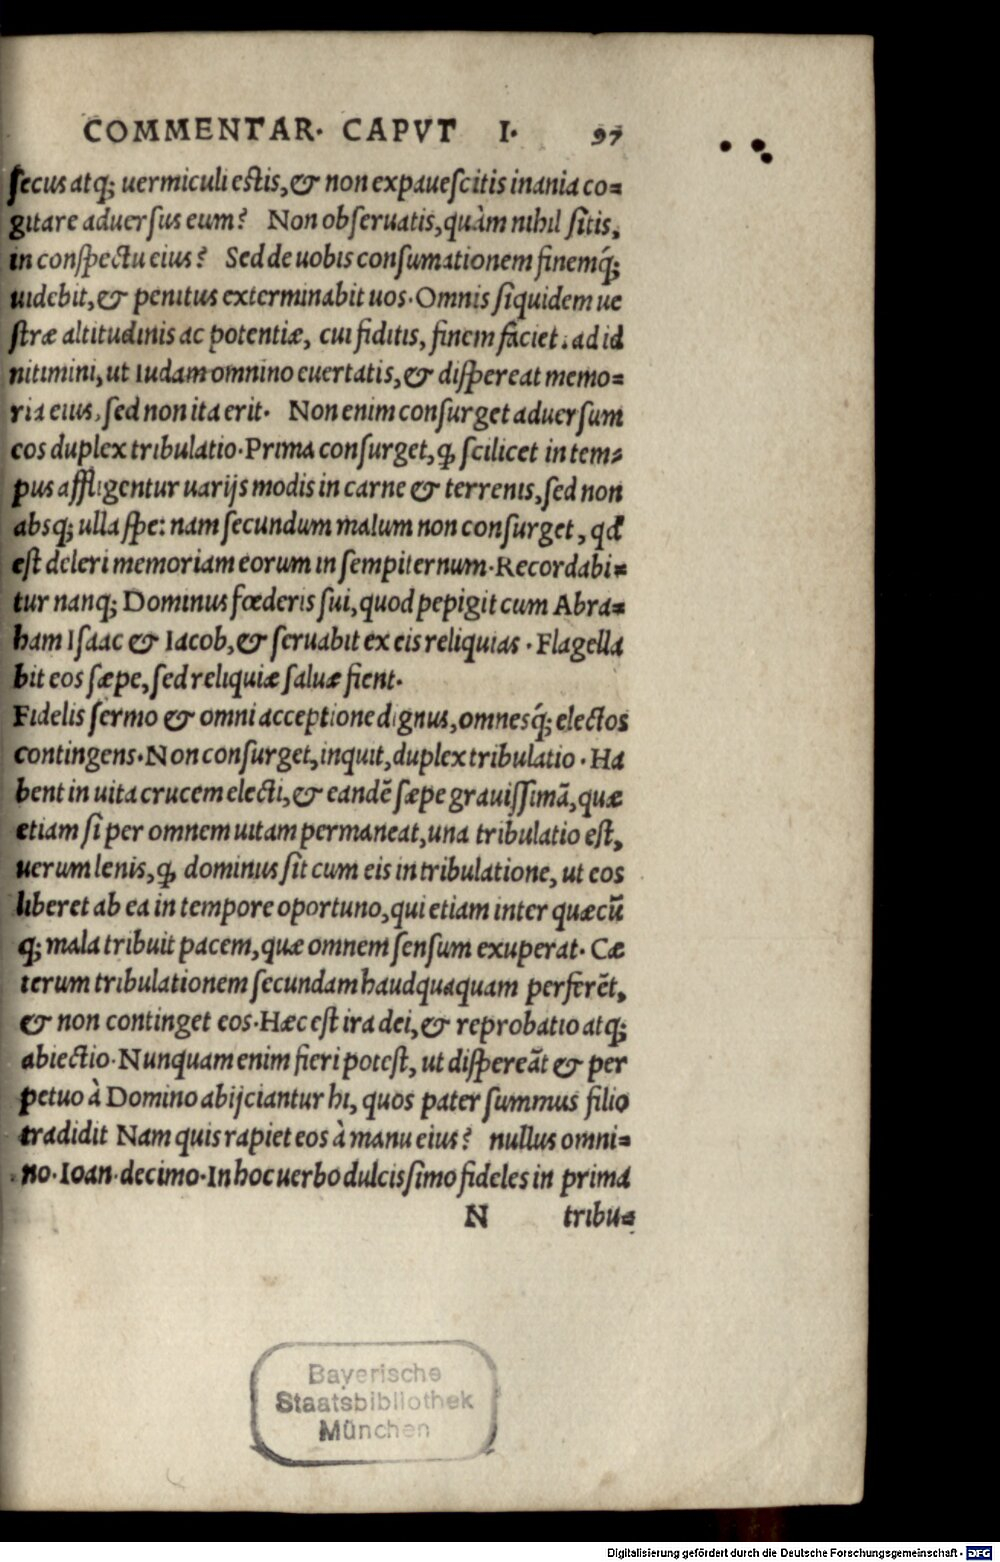 COMMENTAR· CAPVT I· 97
ſecus atq; uermiculi eſtis,& non expaueſcitis inania co=
gitare aduerſus eum? Non obſeruatis,quàm nihil ſitis,
in conſpectu eius? Sed de uobis conſumationem finemq́;
uidebit,& penitus exterminabit uos·Omnis ſiquidem ue
ſtræ altitudinis ac potentiæ, cui fiditis, finem faciet. ad id
nitimini, ut Iudam omnino euertatis,& diſpereat memo=
ria eius, ſed non ita erit· Non enim conſurget aduerſum
eos duplex tribulatio·Prima conſurget,ꝙ ſcilicet in tem=
pus affligentur uarijs modis in carne & terrenis,ſed non
absq; ulla ſpe: nam ſecundum malum non conſurget, qd̛
eſt deleri memoriam eorum in ſempiternum·Recordabi=
tur nanq; Dominus fœderis ſui,quod pepigit cum Abra=
ham Iſaac & Iacob,& ſeruabit ex eis reliquias · Flagella
bit eos ſæpe, ſed reliquiæ ſaluæ fient·
Fidelis ſermo & omni acceptione dignus, omnesq́; electos
contingens·Non conſurget,inquit,duplex tribulatio · Ha
bent in uita crucem electi,& eandē ſæpe grauiſſimā, quæ
etiam ſi per omnem uitam permaneat,una tribulatio eſt,
uerum lenis,ꝙ dominus ſit cum eis in tribulatione, ut eos
liberet ab ea in tempore oportuno,qui etiam inter quæcū
q; mala tribuit pacem,quæ omnem ſenſum exuperat· Cæ
terum tribulationem ſecundam haudquaquam perferēt,
& non continget eos·Hæc eſt ira dei,& reprobatio atq;
abiectio·Nunquam enim fieri poteſt, ut diſpereāt & per
petuo à Domino abijciantur hi, quos pater ſummus filio
tradidit Nam quis rapiet eos à manu eius? nullus omni=
no·Ioan·decimo·In hoc uerbo dulcisſimo fideles in prima
N tribu=
Bayerische
Staatsbibliothek
München
Digitalisierung gefördert durch die Deutsche Forschungsgemeinschaft - DFG